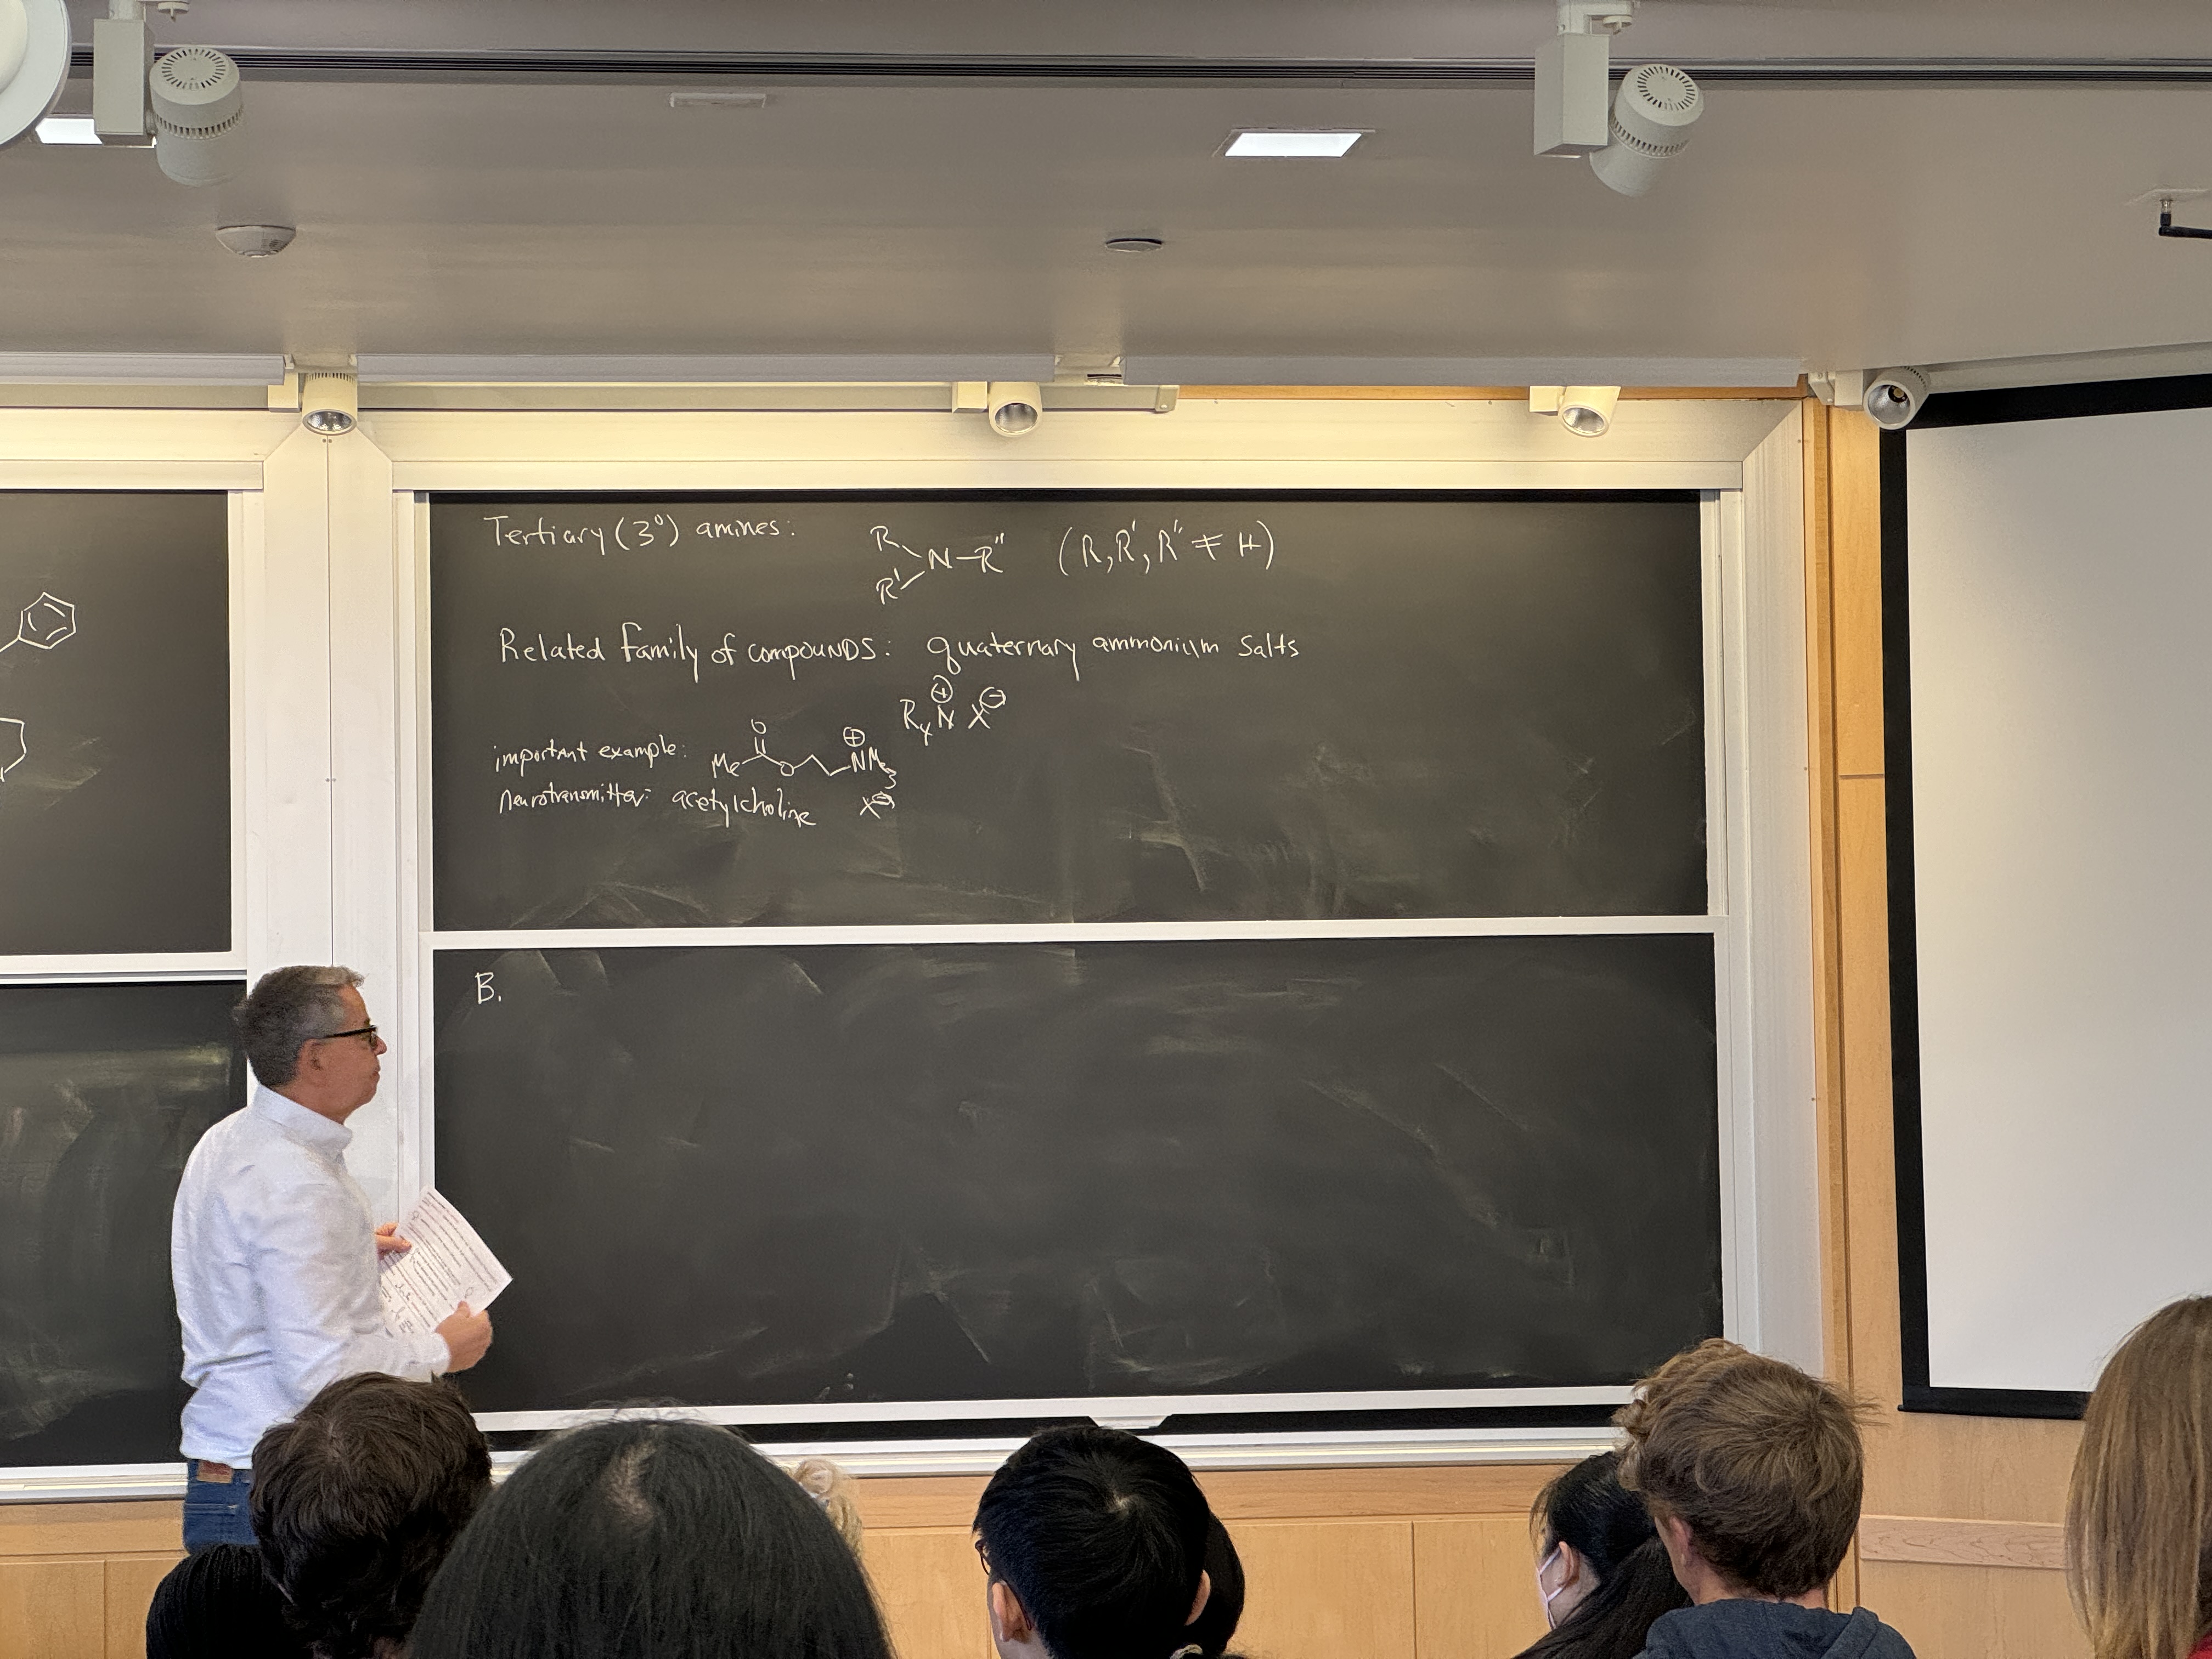 Tertiary (3°) amines:
R R' N-R" (R, R', R" ≠ H)
Related family of compounds: quaternary ammonium salts
R₄N⊕ X⊖
important example: Me O O ⊕ NMe₃
neurotransmitter: acetylcholine X⊖
B.